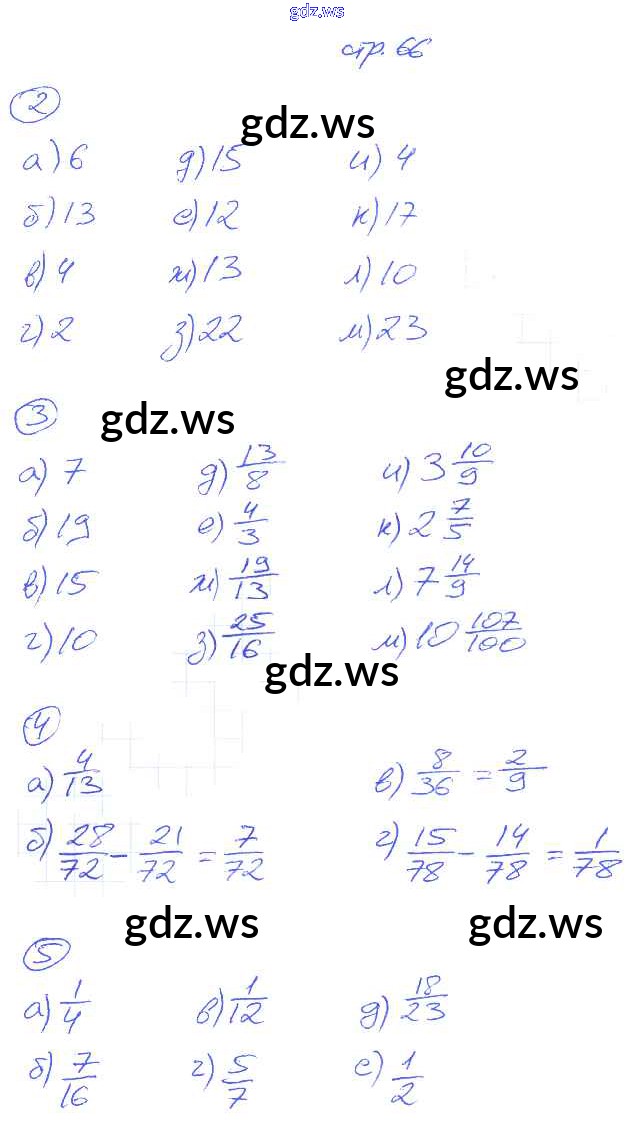 gdz.ws
стр. 66
2
gdz.ws
а) 6 д) 15 и) 4
б) 13 е) 12 к) 17
в) 4 ж) 13 л) 10
г) 2 з) 22 м) 23
gdz.ws
3 gdz.ws
а) 7 д) 13/8 и) 3 10/9
б) 19 е) 4/3 к) 2 7/5
в) 15 ж) 19/13 л) 7 14/9
г) 10 з) 25/16 м) 10 107/100
gdz.ws
4
а) 4/13 в) 8/36 = 2/9
б) 28/72 - 21/72 = 7/72 г) 15/78 - 14/78 = 1/78
gdz.ws gdz.ws
5
а) 1/4 в) 1/12 д) 18/23
б) 7/16 г) 5/7 е) 1/2